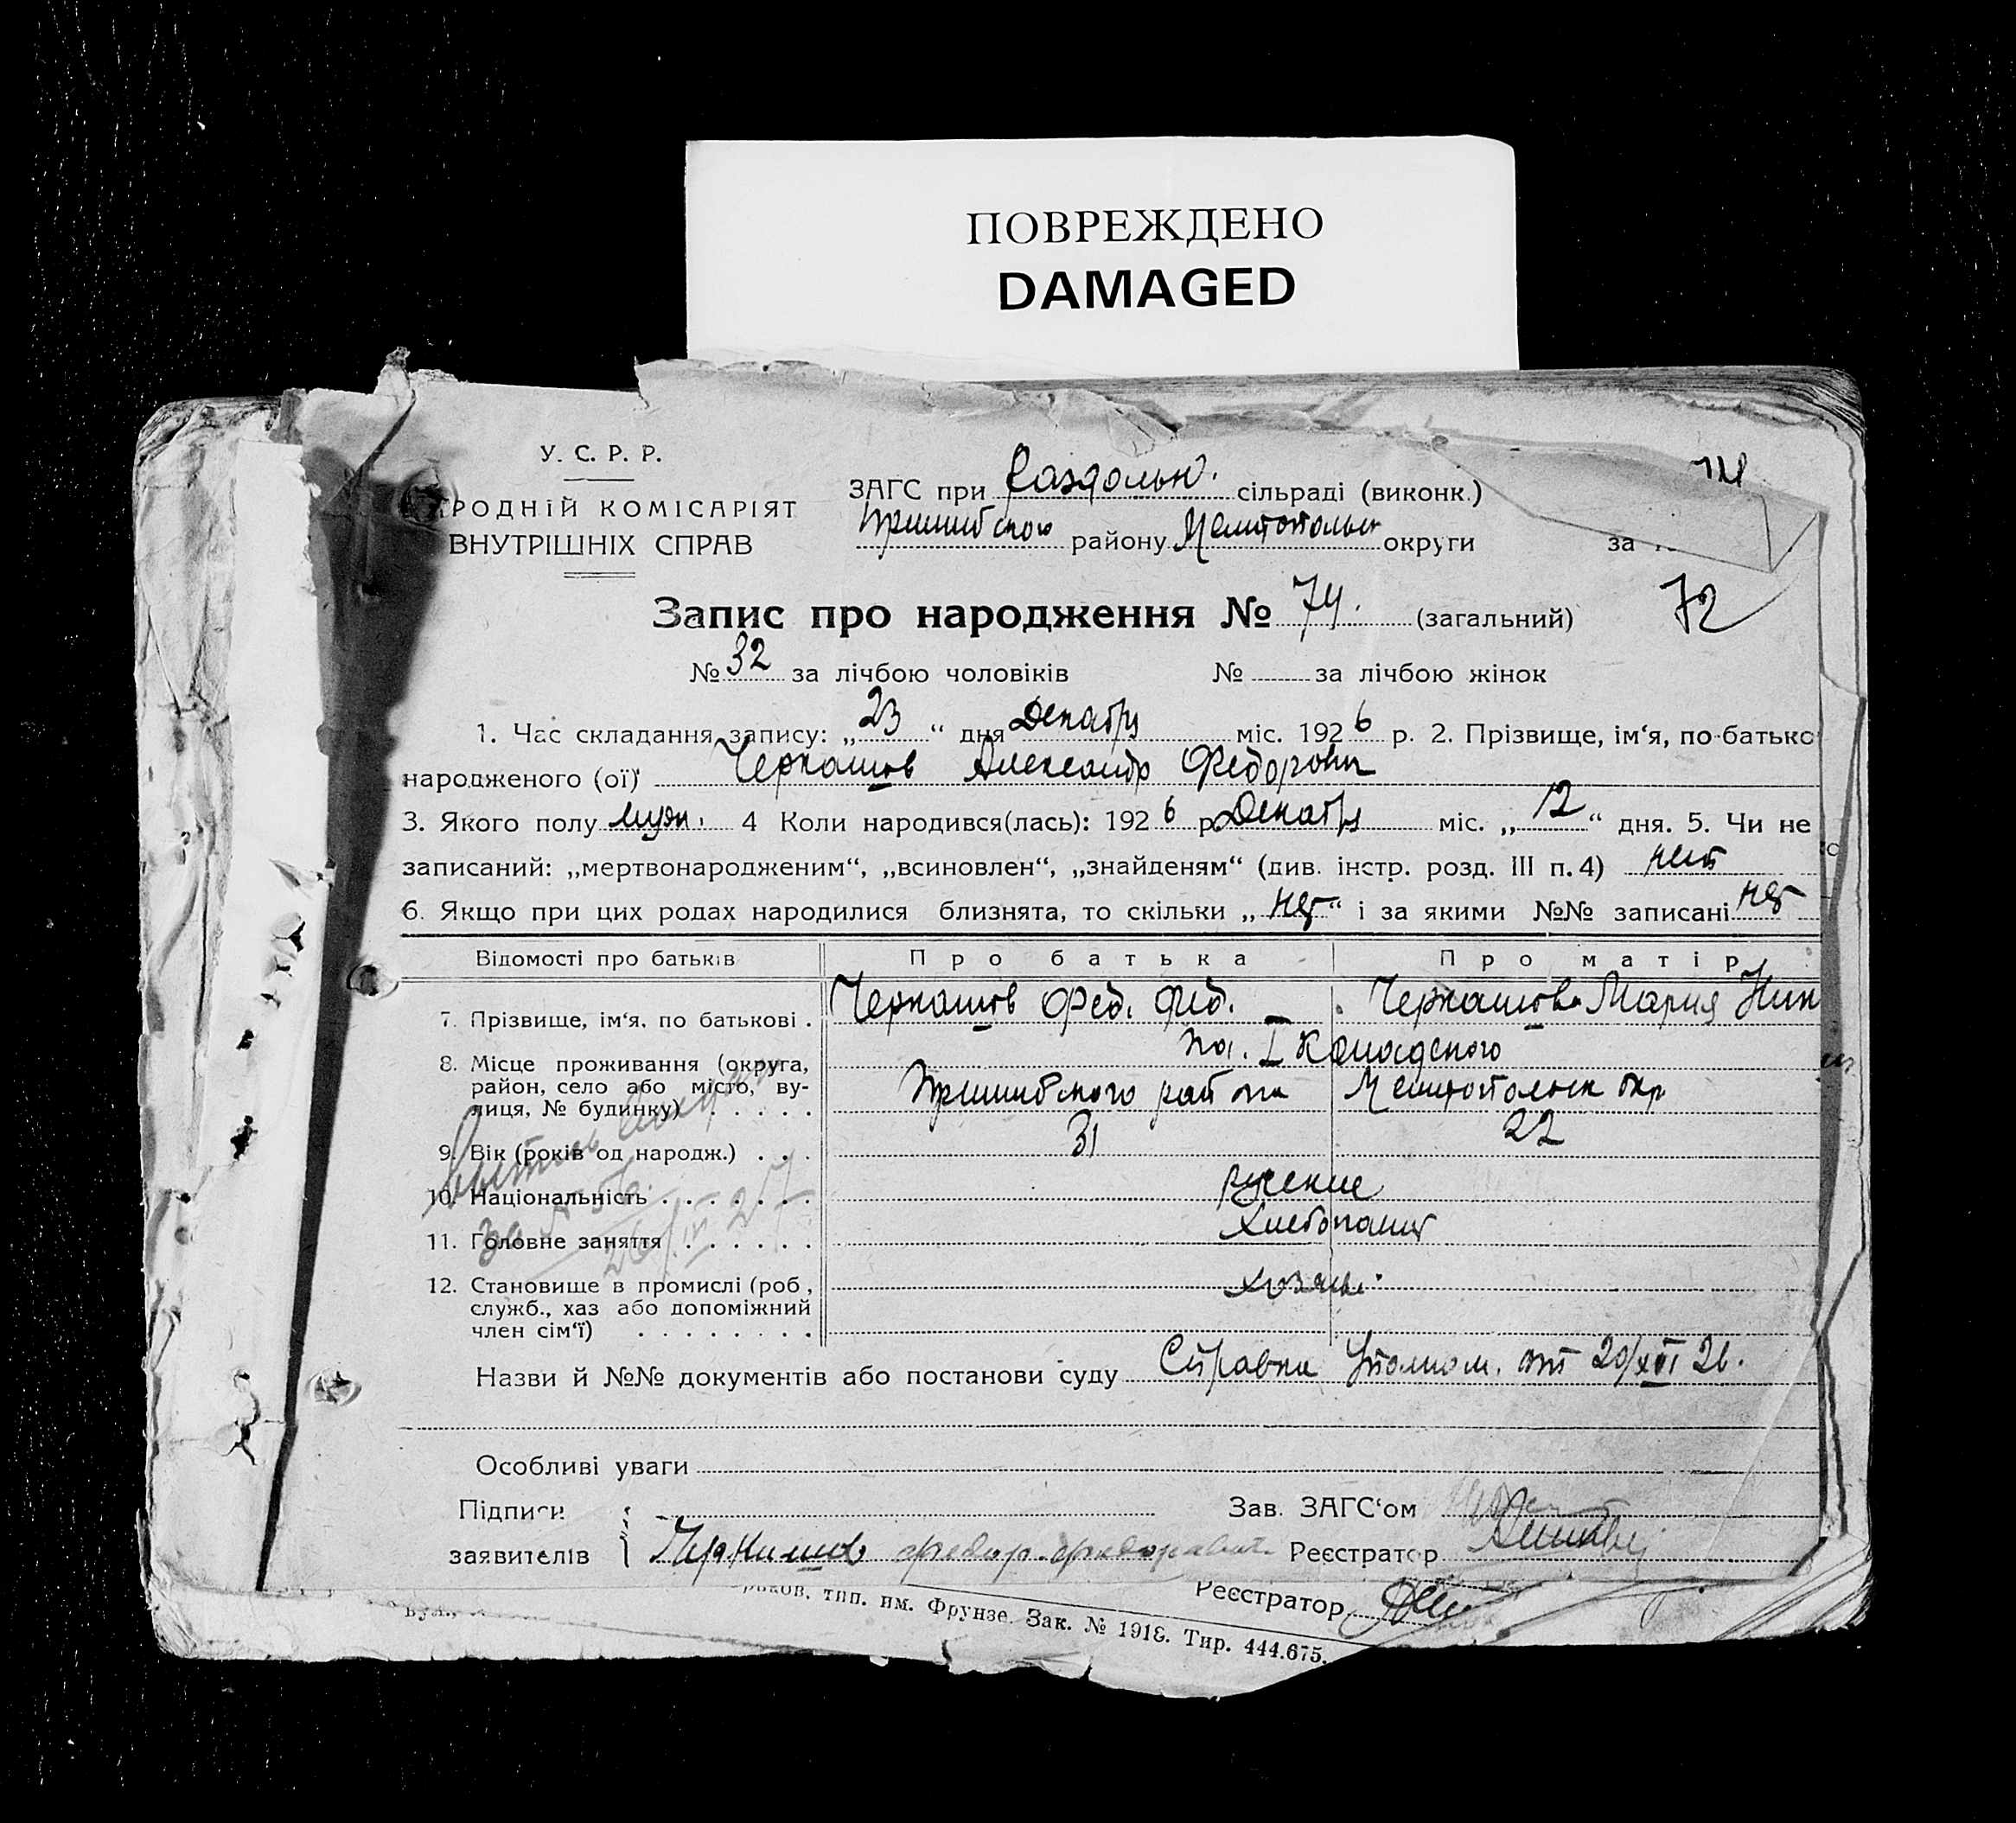 ПОВРЕЖДЕНО
DAMAGED
У. С. Р. Р.
РОДНІЙ КОМІСАРІЯТ
ВНУТРІШНІХ СПРАВ
ЗАГС при Раздольн. сільраді (виконк.)
Пришибского району Мелитопольск округи за
74
Запис про народження № 74. (загальний)
72
№ 32 за лічбою чоловіків № за лічбою жінок
1. Час складання запису: „ 23 “ дня Декабря міс. 1926 р. 2. Прізвище, ім‘я, по-батько
народженого (ої) Черкашов Александр Федорович
3. Якого полу муж. 4 Коли народився(лась): 1926 р Декабря міс. „ 12 “ дня. 5. Чи не
записаний: „мертвонародженим“, „всиновлен“, „знайденям“ (див. інстр. розд. III п. 4) нет
6. Якщо при цих родах народилися близнята, то скільки „ нет “ і за якими №№ записані нет
Відомості про батьків Про батька Про матір
7. Прізвище, ім‘я, по батькові . Черкашов Фед. Фед. Черкашова Мария Ник
8. Місце проживання (округа, район, село або місто, вулиця, № будинку) I
Пришибского района Мелитопольск окр
9. Вік (років од народж.) . . . 31 22
10. Національність . . . . . . . русские
11. Головне заняття . . . . . . Хлебопашц
за № 56.
12. Становище в промислі (роб,
служб., хаз або допоміжний
член сім‘ї) . . . . . . . . хозяин.
Назви й №№ документів або постанови суду Справка Уполном. от 20/XII 26.
Особливі уваги
Підписи
заявителів Черкашов Федор Федоравич
Зав. ЗАГС‘ом
Реєстратор
Реєстратор
тип. им. Фрунзе. Зак. № 1918. Тир. 444.675.